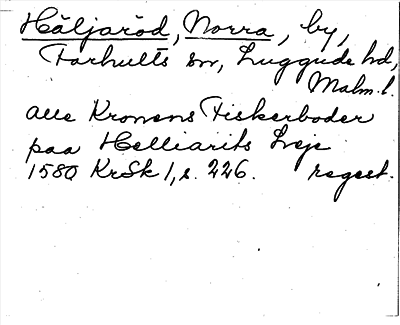 Häljaröd, Norra, by,
Farhults sn, Luggude hd,
Malm. l.
alle Kronens Fiskerboder
paa Helliarits Leje
1580 KrSk 1, s. 226. regest.